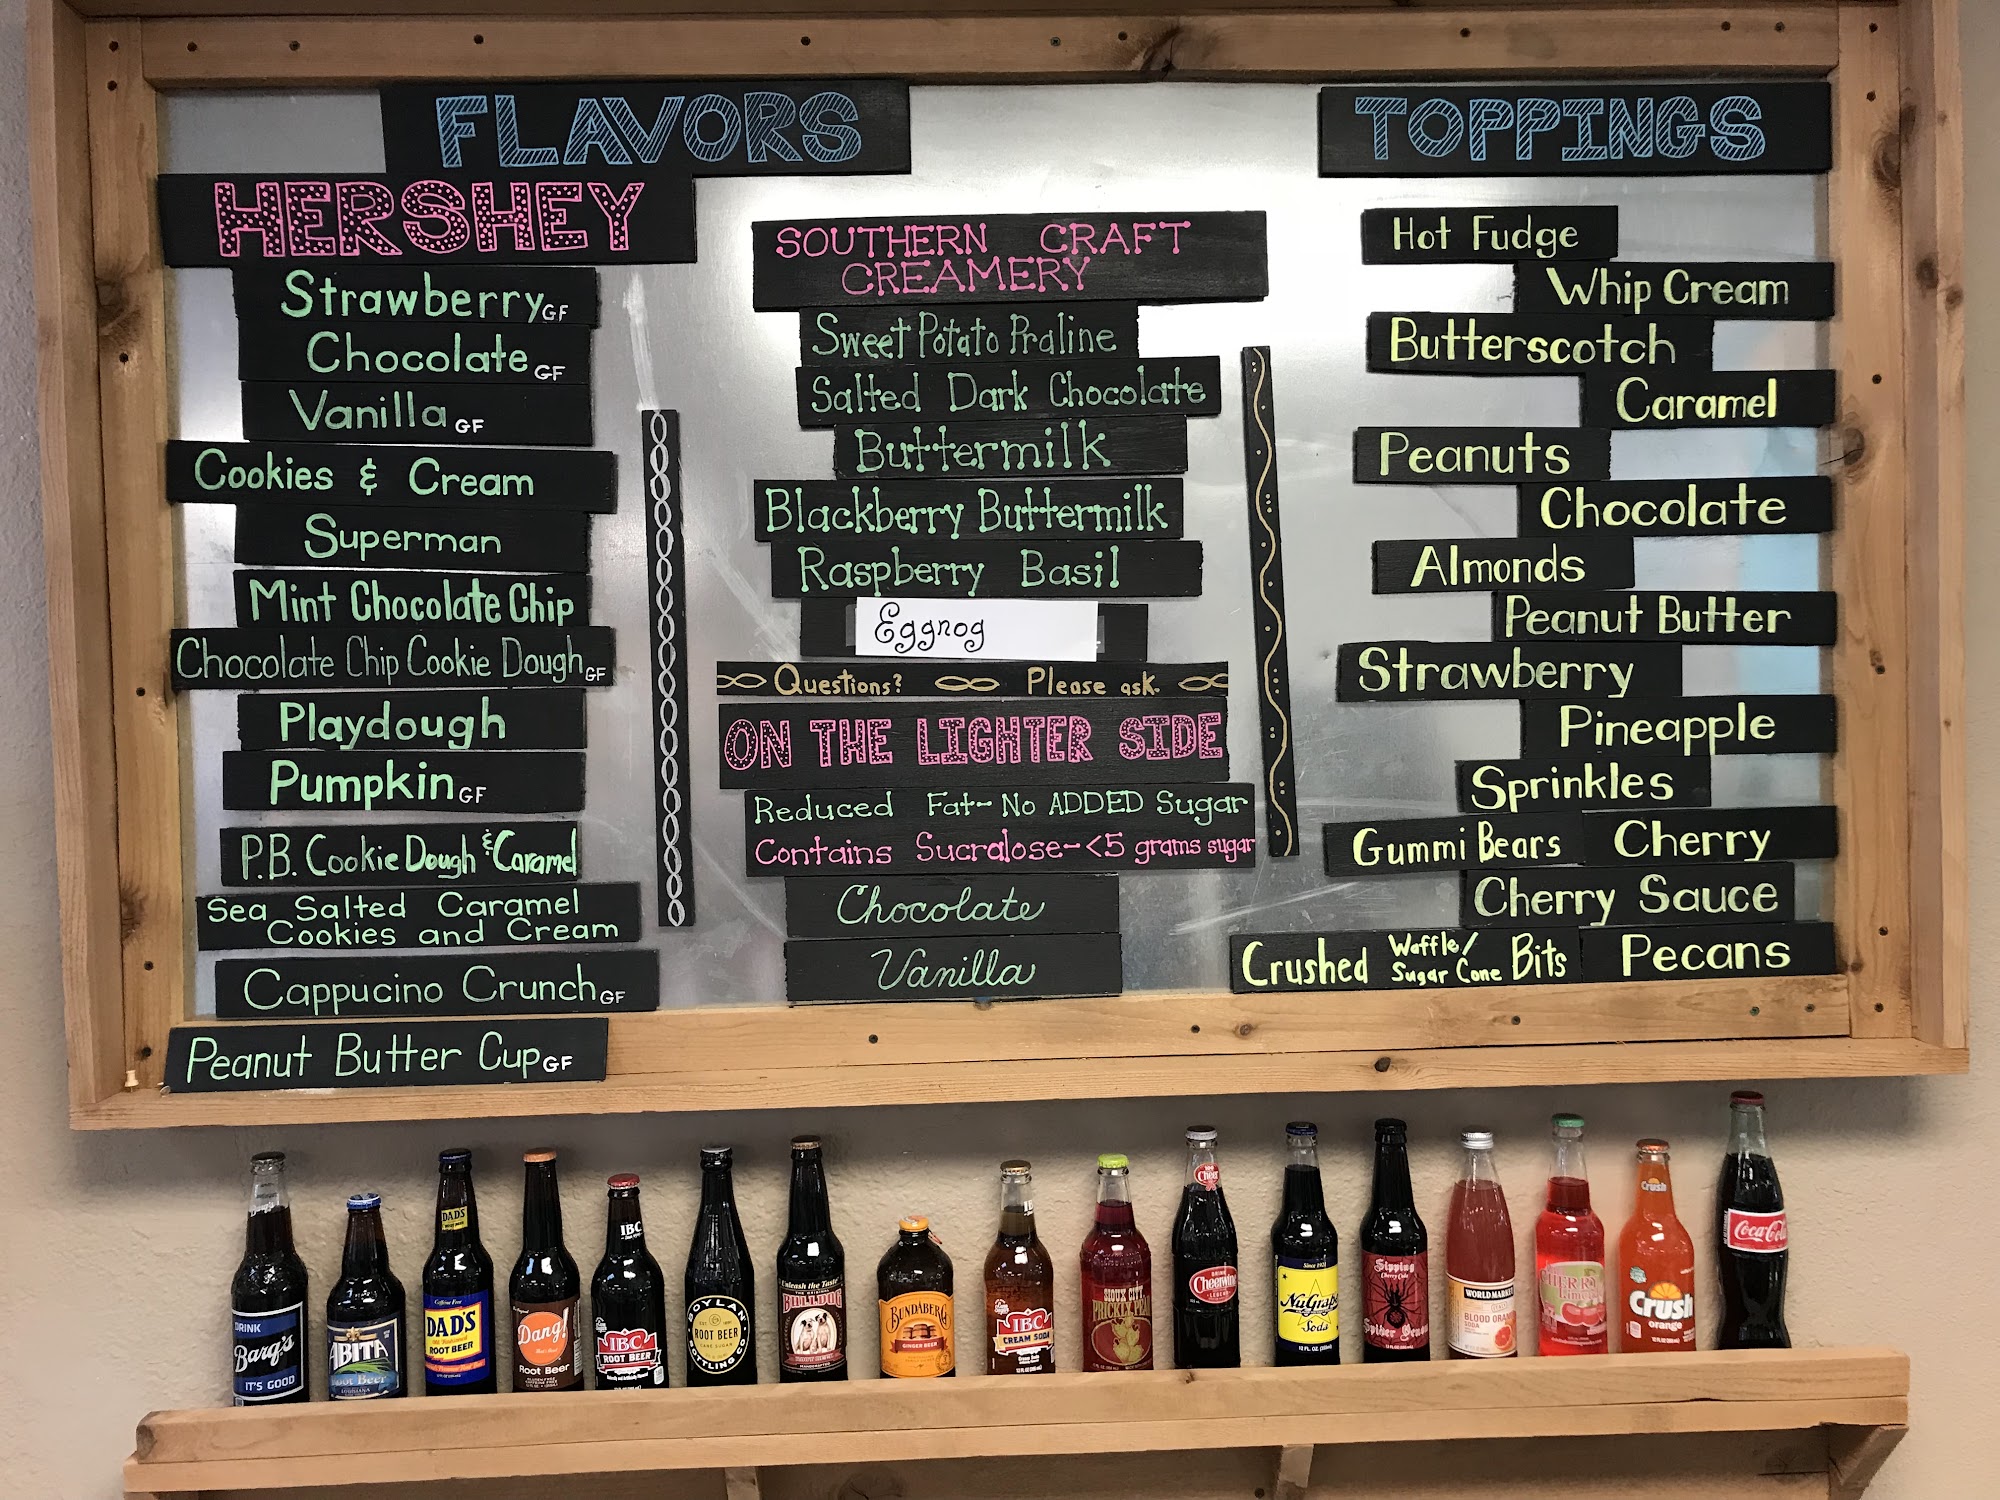 FLAVORS
HERSHEY
Strawberry GF
Chocolate GF
Vanilla GF
Cookies & Cream
Superman
Mint Chocolate Chip
Chocolate Chip Cookie Dough GF
Playdough
Pumpkin GF
P.B. Cookie Dough & Caramel
Sea Salted Caramel
Cookies and Cream
Cappucino Crunch GF
Peanut Butter Cup GF
SOUTHERN CRAFT
CREAMERY
Sweet Potato Praline
Salted Dark Chocolate
Buttermilk
Blackberry Buttermilk
Raspberry Basil
Eggnog
Questions? Please ask.
ON THE LIGHTER SIDE
Reduced Fat- No ADDED Sugar
Contains Sucralose-<5 grams sugar
Chocolate
Vanilla
TOPPINGS
Hot Fudge
Whip Cream
Butterscotch
Caramel
Peanuts
Chocolate
Almonds
Peanut Butter
Strawberry
Pineapple
Sprinkles
Gummi Bears Cherry
Cherry Sauce
Crushed Waffle/ Sugar Cone Bits Pecans
DRINK
Barq's
IT'S GOOD
ABITA
Root Beer
LOUISIANA
DAD'S
Caffeine Free
DAD'S
Old Fashioned
ROOT BEER
Dang!
Root Beer
IBC
IBC
ROOT BEER
BOYLAN
ROOT BEER
CANE SUGAR
BOTTLING CO.
Unleash the Taste
BULLDOG
BUNDABERG
GINGER BEER
IBC
CREAM SODA
SIOUX CITY
PRICKLY PEAR
Cheer
DRINK
Cheerwine
LEGEND
Since 1921
NuGrape
Soda
12 FL. OZ.
Sipping
Cherry Cola
Spider
WORLD MARKET
BLOOD ORANGE
SODA
CHERRY
Limeade
Crush
Crush
orange
Coca-Cola